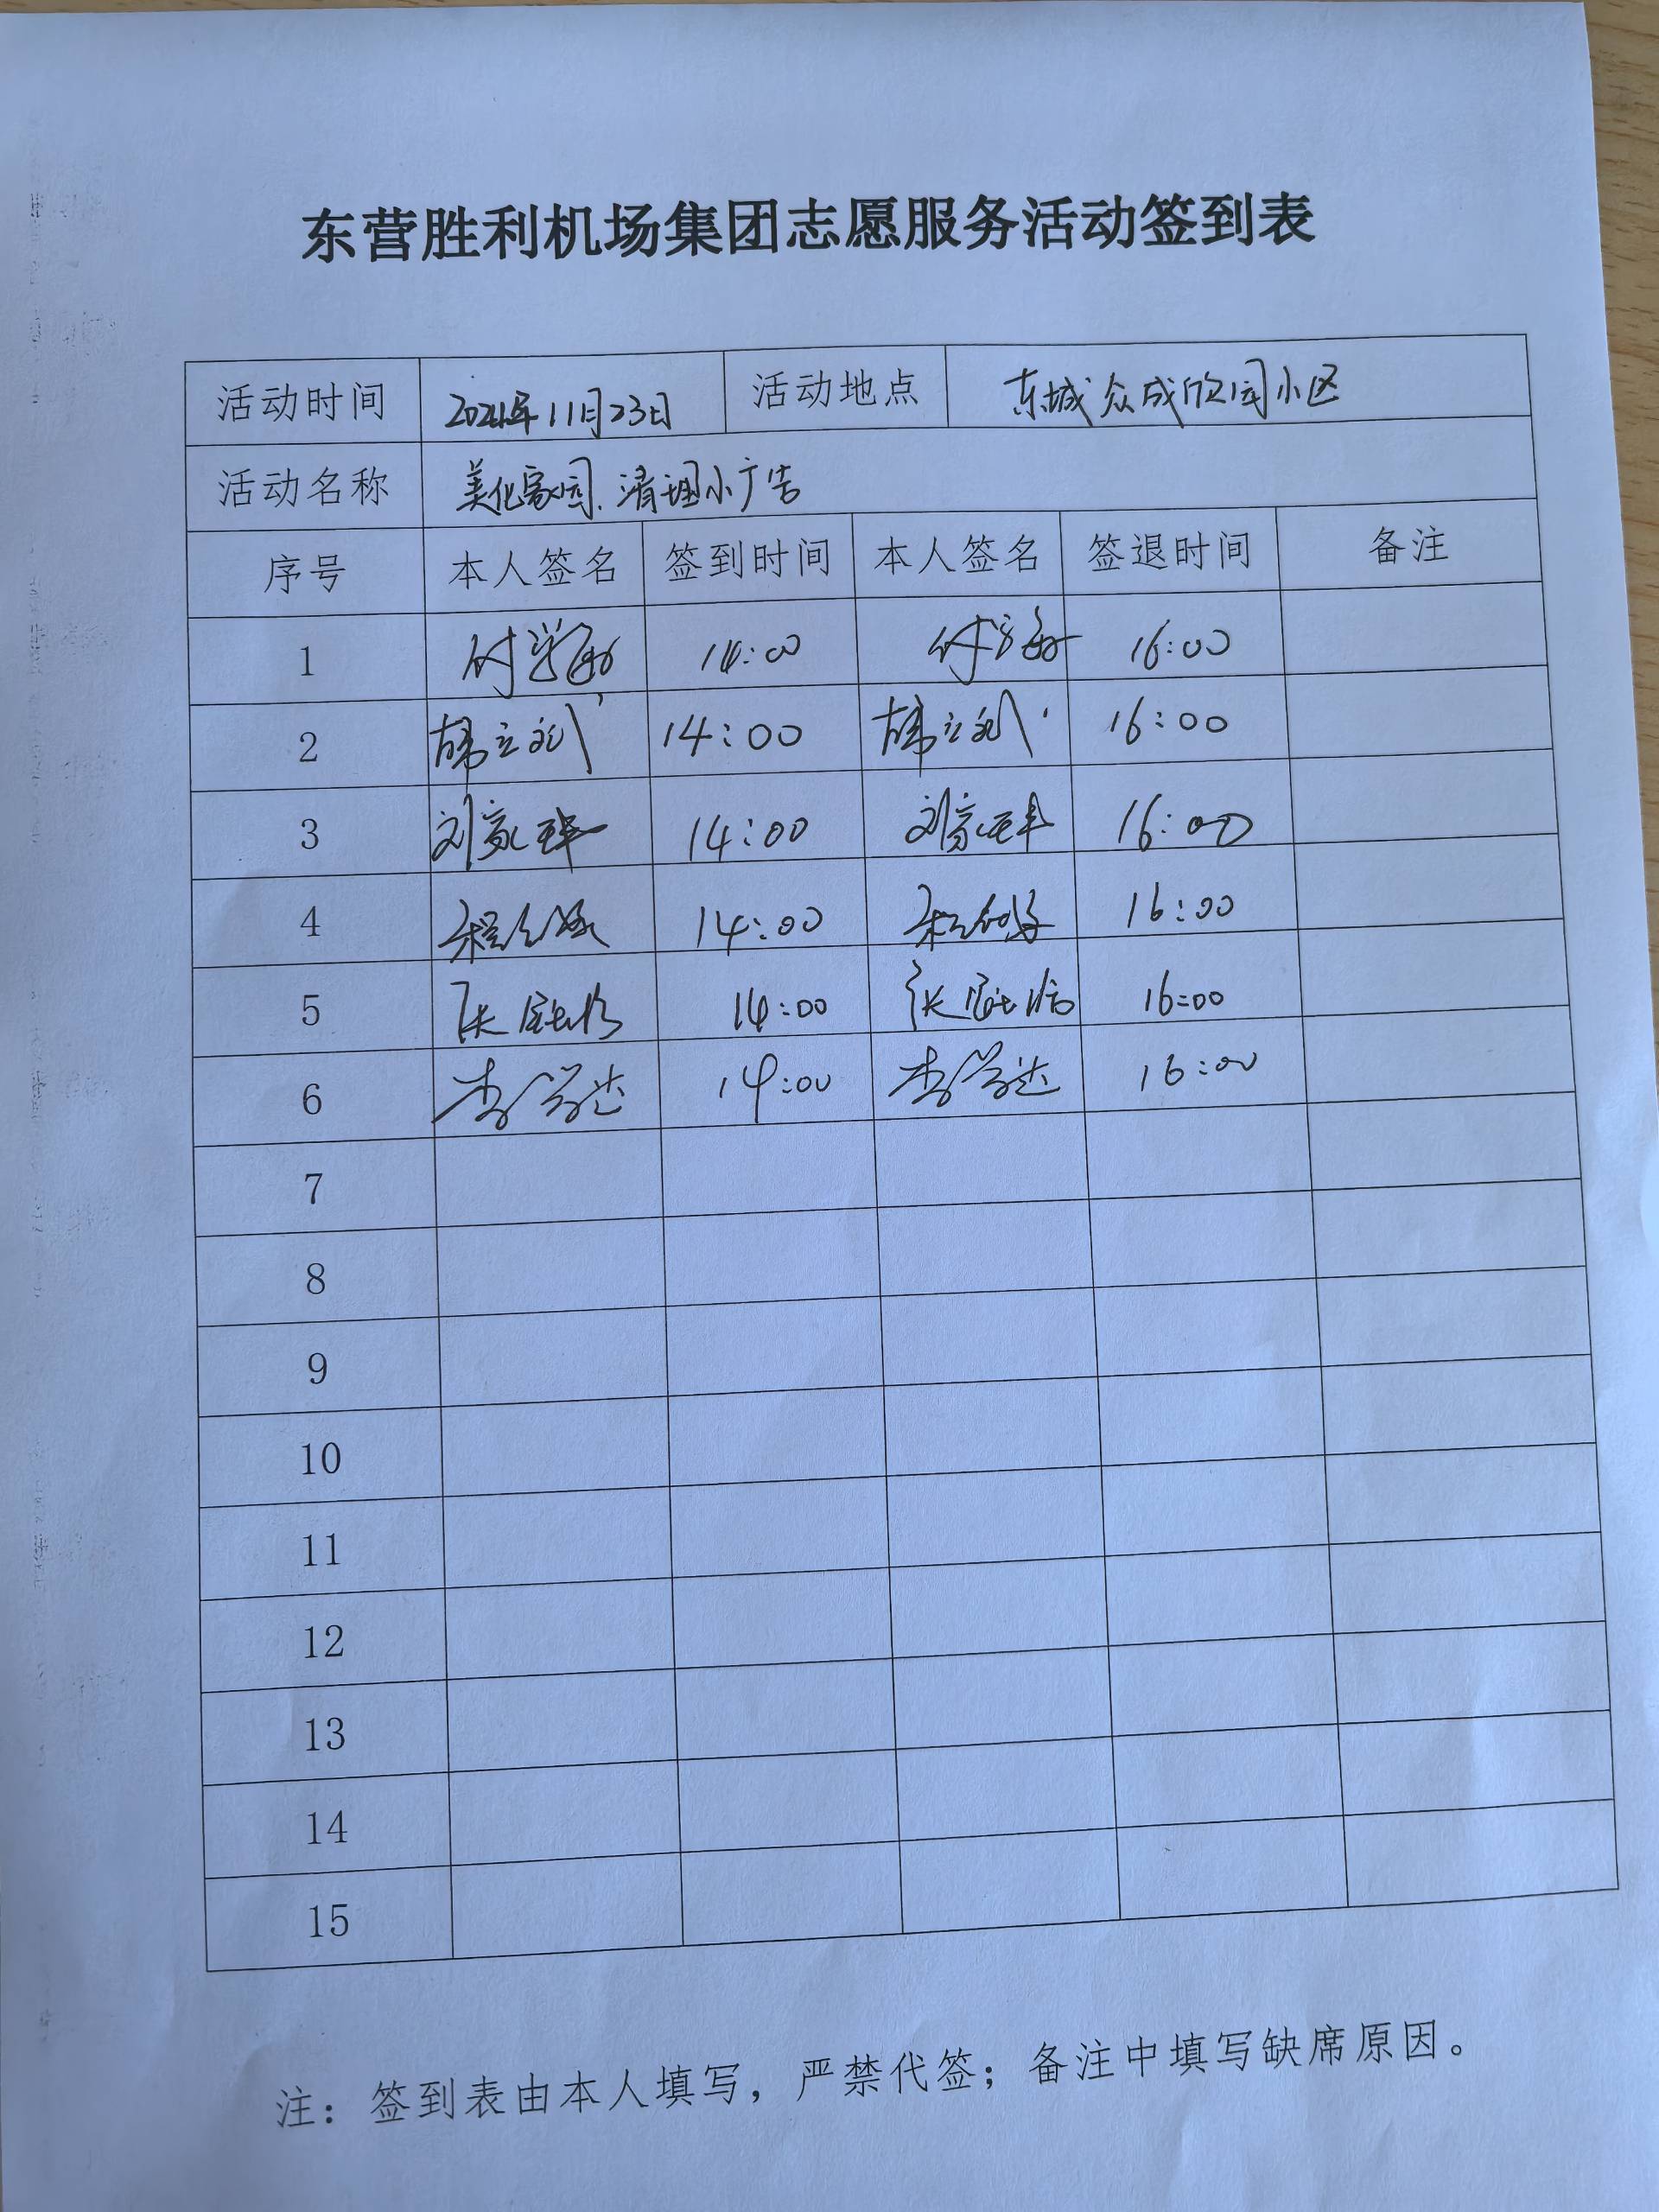 东营胜利机场集团志愿服务活动签到表
活动时间 11月23日 活动地点 东城众成欣园小区
活动名称 美化家园.清理小广告
序号 本人签名 签到时间 本人签名 签退时间 备注
1 14:00 16:00
2 14:00 16:00
3 刘家 14:00 刘家 16:00
4 14:00 16:00
5 张 14:00 张 16:00
6 李学达 14:00 李学达 16:00
7
8
9
10
11
12
13
14
15
注：签到表由本人填写，严禁代签；备注中填写缺席原因。